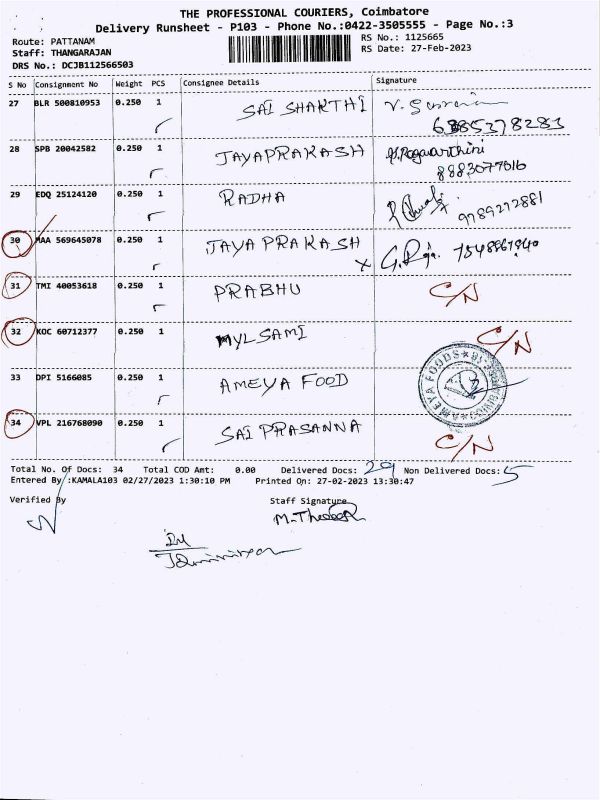 THE PROFESSIONAL COURIERS, Coimbatore
Delivery Runsheet - P103 - Phone No.:0422-3505555 - Page No.:3
Route: PATTANAM RS No.: 1125665
Staff: THANGARAJAN RS Date: 27-Feb-2023
DRS No.: DCJB112566503
S No Consignment No Weight PCS Consignee Details Signature
27 BLR 500810953 0.250 1 SAI SHAKTHI
28 SPB 20042582 0.250 1 JAYAPRAKASH
8883077016
29 EDQ 25124120 0.250 1 RADHA
9789272881
30 MAA 569645078 0.250 1 JAYA PRAKASH
31 TMI 40053618 0.250 1 PRABHU C/N
32 KOC 60712377 0.250 1 MYLSAMI C/N
33 DPI 5166085 0.250 1 AMEYA FOOD AMEYA FOODS
34 VPL 216768090 0.250 1 SAI PRASANNA C/N
Total No. Of Docs: 34 Total COD Amt: 0.00 Delivered Docs: 29 Non Delivered Docs: 5
Entered By :KAMALA103 02/27/2023 1:30:10 PM Printed On: 27-02-2023 13:30:47
Verified By Staff Signature